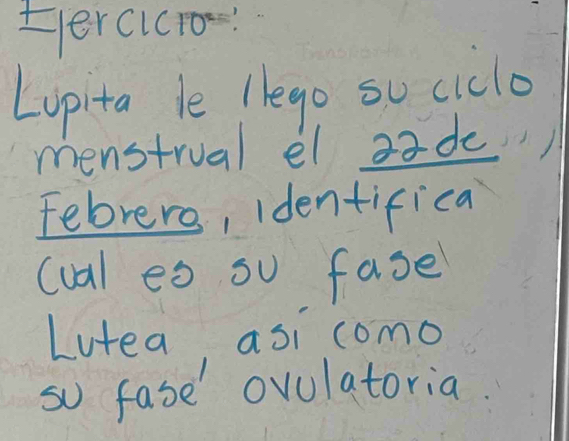 Ejercicio:
Lupita le llego su ciclo
menstrual el 22 de
Febrero, identifica
cual es su fase
Lutea, así como
su fase ovulatoria.